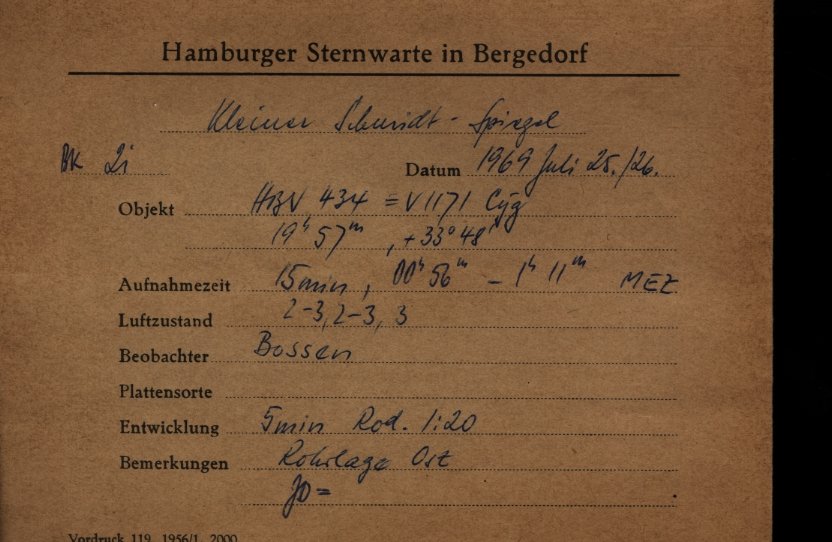 Hamburger Sternwarte in Bergedorf
Kleiner Schmidt-Spiegel
BK 2i Datum 1969 Juli 25./26.
Objekt HBV 434 = V1171 Cyg
19h 57m, +33° 48'
Aufnahmezeit 15min, 00h 56m - 1h 11m MEZ
Luftzustand 2-3, 2-3, 3
Beobachter Bossen
Plattensorte
Entwicklung 5min Rod. 1:20
Bemerkungen Rohrlage Ost
JD =
Vordruck 119 1956/1 2000